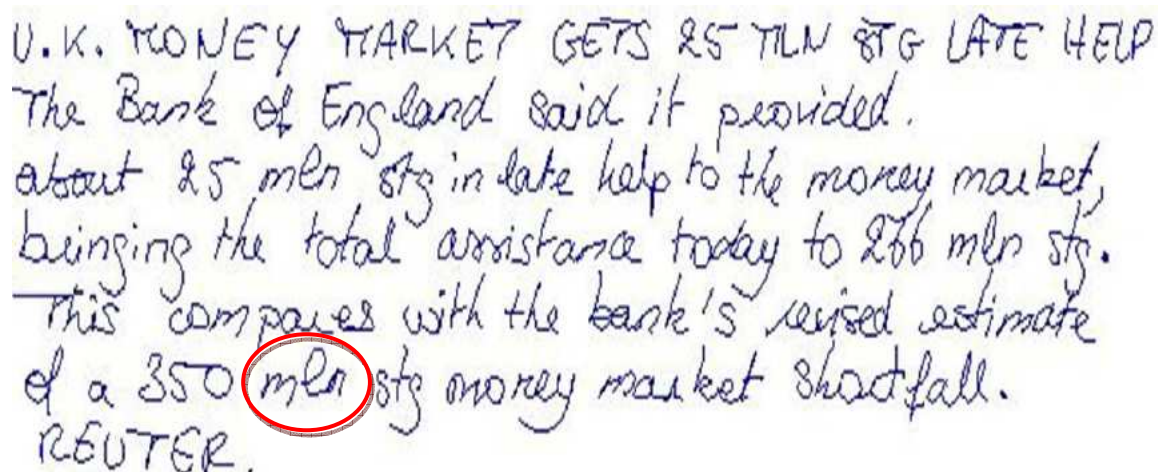 U.K. MONEY MARKET GETS 25 MLN STG LATE HELP
The Bank of England said it provided.
about 25 mln stg in late help to the money market,
bringing the total assistance today to 266 mln stg.
This compares with the bank's revised estimate
of a 350 mln stg money market shortfall.
REUTER.